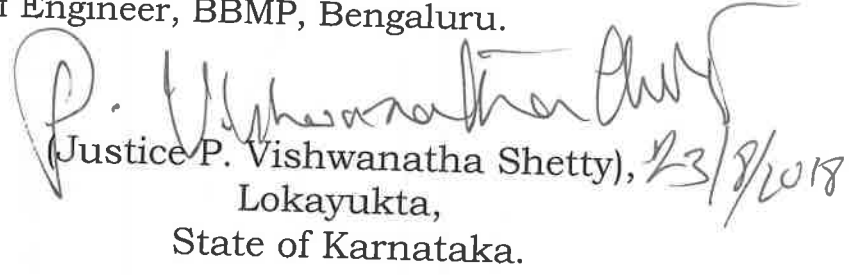 Engineer, BBMP, Bengaluru.
P. Vishwanatha Shetty
(Justice P. Vishwanatha Shetty), 23/8/2018
Lokayukta,
State of Karnataka.